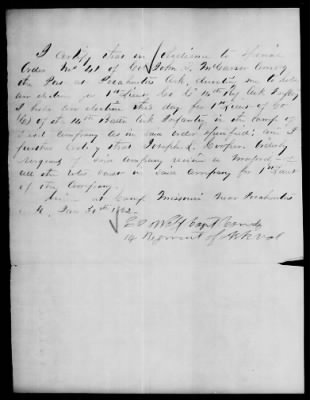 I certify that in obedience to special
Order No 41 of Col John S. McCarver Comdg
the Post at Pocahontas Ark, directing me to hold
an election for 1st Lieut Co 14th Ark
I held an election this day for 1st Lieut of Co
of the 14th Ark Infantry in the Camp of
said Company as in said order specified; and I
further certify that Joseph L. Cooper Orderly
Sergeant of said company received
all the votes cast in said Company for 1st Lieut
of the Company
at Camp Missouri Near Pocahontas
Ark, Jan 31st 1862
Capt Comdg
14 Regiment of Ark Vol